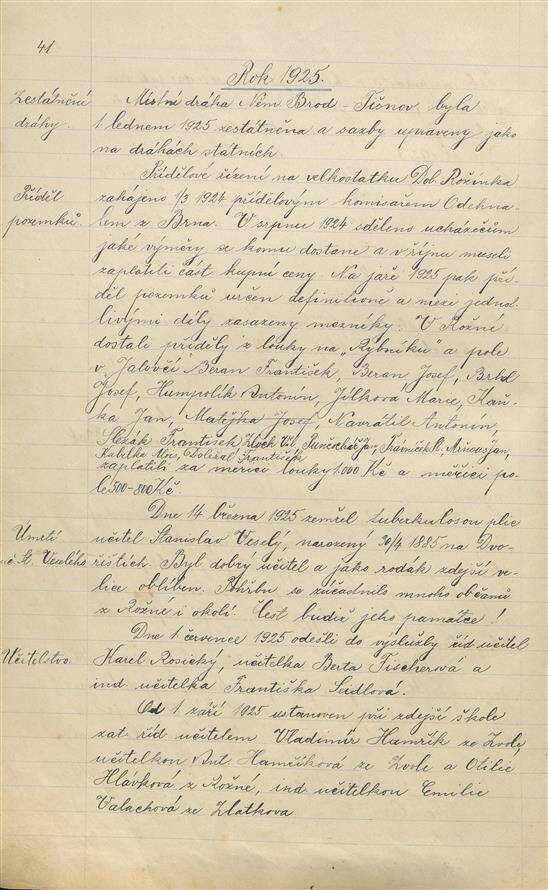 41
Rok 1925.
Zestátnění
dráhy.
Místní dráha Něm. Brod - Tišnov byla
1 lednem 1925 zestátněna a sazby upraveny jako
na dráhách státních.
Přídělové řízení na velkostatku Dol. Rožínka
Příděl
pozemků.
zahájeno 1/3 1924 přídělovým komisařem Odehna-
lem z Brna. V srpnu 1924 sděleno uchazečům
jaké výměry se komu dostane a v říjnu museli
zaplatiti část kupní ceny. Na jaře 1925 pak pří-
děl pozemků určen definitivně a mezi jednot-
livými díly zasazeny mezníky. V Rožné
dostali příděly z louky na „Rybníku" a pole
v „Jalovčí" Beran František, Beran Josef,
Josef, Humpolík Antonín, Jílková Marie, Kaň-
ka Jan, Matějka Josef, Navrátil Antonín,
Slezák František, Jan,
Doležal František
zaplatili za měřici louky 1.000 Kč a měřici po-
le 500-800 Kč.
Dne 14 března 1925 zemřel tuberkulosou plic
Úmrtí
uč. St. Veselého
učitel Stanislav Veselý, narozený 30/4 1885 na Dvo-
řištích. Byl dobrý učitel a jako rodák zdejší ve-
lice oblíben. Pohřbu se zúčastnilo mnoho občanů
z Rožné i okolí. Čest budiž jeho památce!
Dne 1 července 1925 odešli do výslužby říd. učitel
Učitelstvo.
Karel Rosický, učitelka Berta Fischerová a
ind učitelka Františka Seidlova.
Od 1. září 1925 ustanoven při zdejší škole
zat. říd učitelem Vladimír Hamřík ze Zvole,
učitelkou Ant. Hamříková ze Zvole a Otilie
Hlávková z Rožné, ind učitelkou Emilie
Valachová ze Zlatkova.